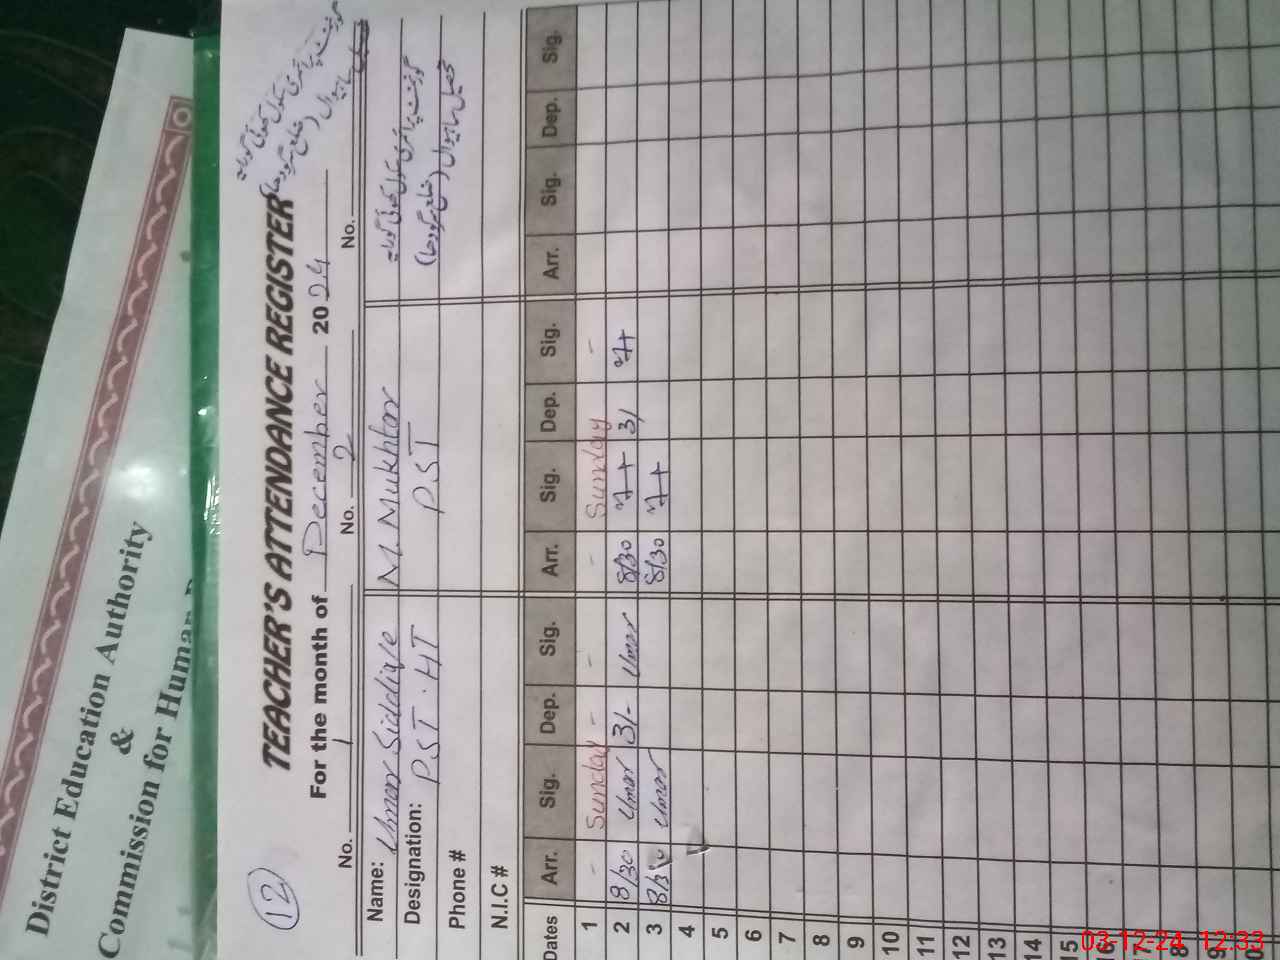 District Education Authority
&
Commission for Human
12
TEACHER'S ATTENDANCE REGISTER
For the month of December 2024
No. 1 No. 2 No.
Name: Umar Siddique M. Mukhtar
Designation: PST. HT PST
Phone #
N.I.C #
Dates Arr. Sig. Dep. Sig. Arr. Sig. Dep. Sig. Arr. Sig. Dep. Sig.
1 - Sunday - - - Sunday -
2 8/30 Umar 3/- Umar 8/30 3/
3 8/30 Umar 8/30
4
5
6
7
8
9
10
11
12
13
14
15
16
03-12-24 12:33